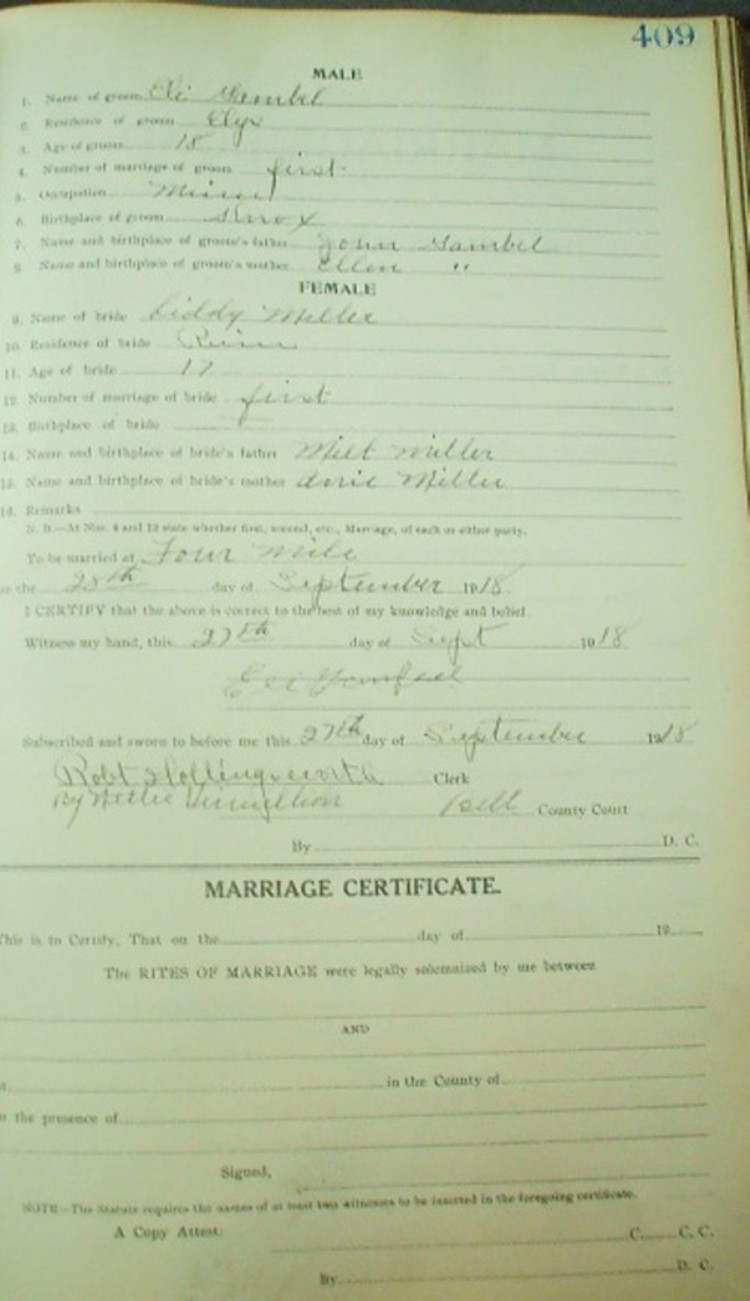 409
MALE
1. Name of groom Eli Gambel
2. Residence of groom Elys
3. Age of groom 18
4. Number of marriage of groom first
5. Occupation Miner
6. Birthplace of groom Knox
7. Name and birthplace of groom's father John Gambel
8. Name and birthplace of groom's mother Ellen "
FEMALE
9. Name of bride Liddy Miller
10. Residence of bride
11. Age of bride 17
12. Number of marriage of bride first
13. Birthplace of bride
14. Name and birthplace of bride's father Milt Miller
15. Name and birthplace of bride's mother Anie Miller
16. Remarks
N. B.—At Nos. 4 and 12 state whether first, second, etc., Marriage, of each or either party.
To be married at Four Mile
on the 28th day of September 1918
I CERTIFY that the above is correct to the best of my knowledge and belief.
Witness my hand, this 27th day of Sept 1918
Eli Gambel
Subscribed and sworn to before me this 27th day of September 1918
Robt Hollingsworth Clerk
By Nettie Vermillion Bell County Court
By D. C.
MARRIAGE CERTIFICATE.
This is to Certify, That on the day of 19
The RITES OF MARRIAGE were legally solemnized by me between
AND
in the County of
the presence of
Signed,
NOTE—The Statute requires the names of at least two witnesses to be inserted in the foregoing certificate.
A Copy Attest:
C. C. C.
By D. C.